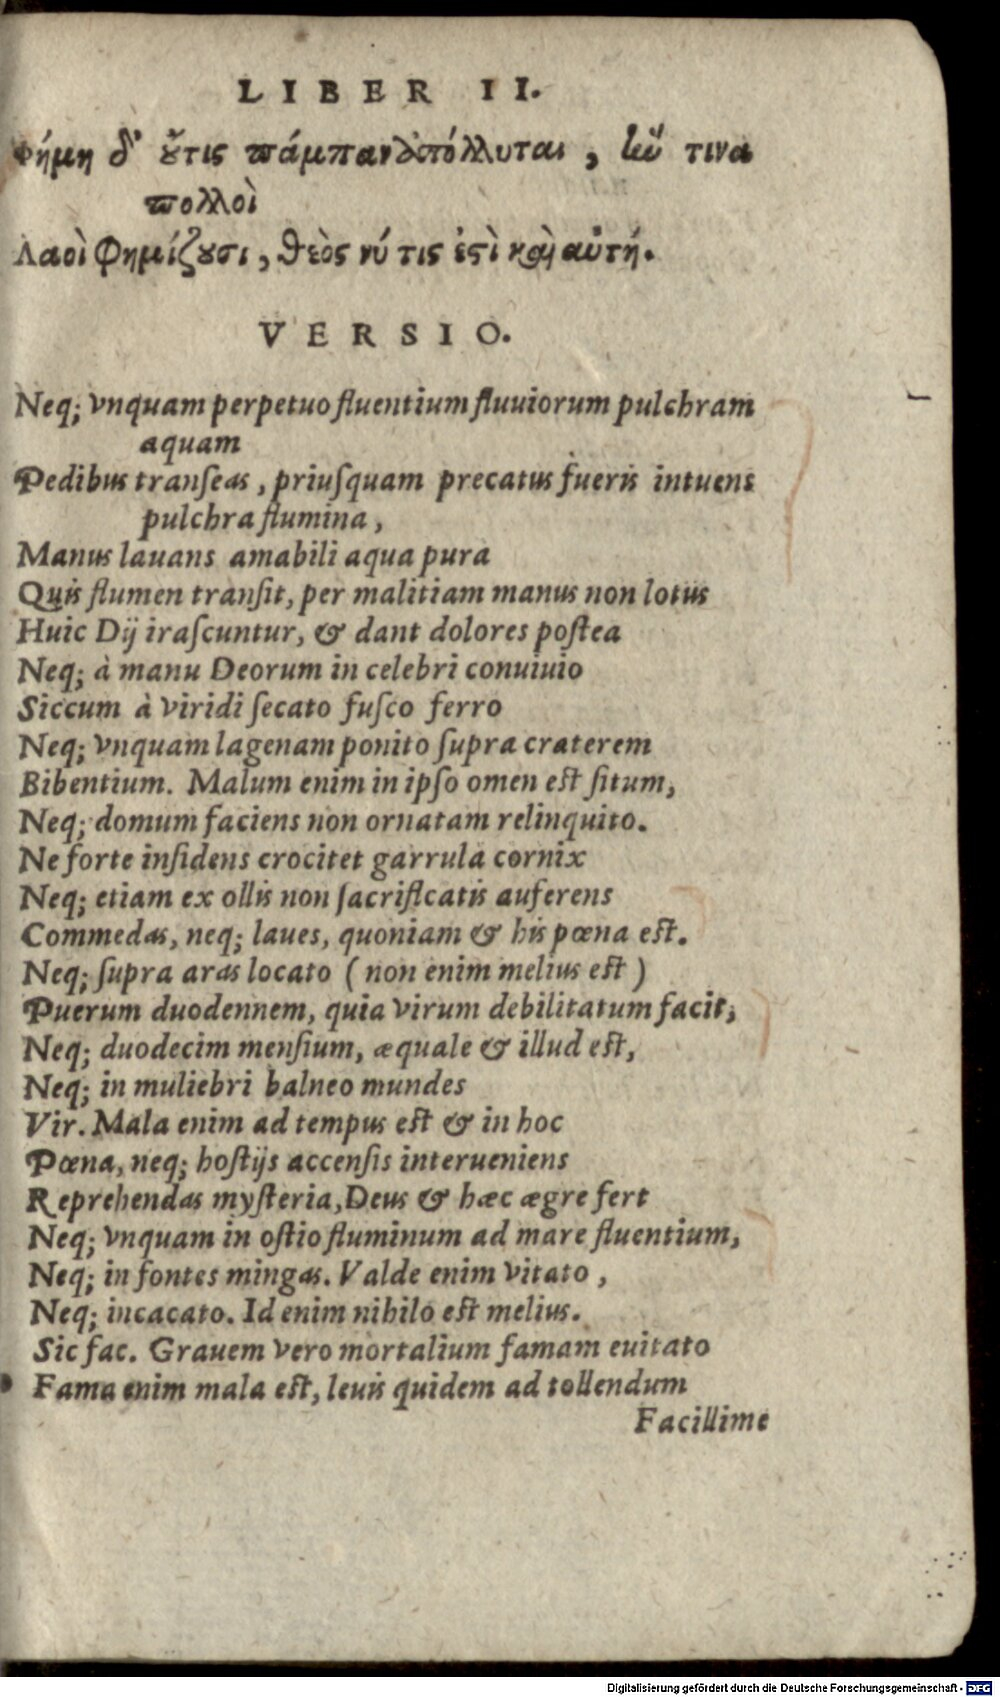 LIBER II.
Φήμη δ' οὔτις πάμπαν ἀπόλλυται, ἥν τινα
πολλοὶ
Λαοὶ φημίζουσι, θεός νύ τις ἐστὶ καὶ αὐτή.
VERSIO.
Neq; vnquam perpetuo fluentium fluuiorum pulchram
aquam
Pedibus tranſeas, priuſquam precatus fueris intuens
pulchra flumina,
Manus lauans amabili aqua pura
Quis flumen tranſit, per malitiam manus non lotus
Huic Dij iraſcuntur, & dant dolores poſtea
Neq; à manu Deorum in celebri conuiuio
Siccum à viridi ſecato fuſco ferro
Neq; vnquam lagenam ponito ſupra craterem
Bibentium. Malum enim in ipſo omen eſt ſitum,
Neq; domum faciens non ornatam relinquito.
Ne forte inſidens crocitet garrula cornix
Neq; etiam ex ollis non ſacrificatis auferens
Commedas, neq; laues, quoniam & his pœna eſt.
Neq; ſupra aras locato (non enim melius eſt)
Puerum duodennem, quia virum debilitatum facit,
Neq; duodecim menſium, æquale & illud eſt,
Neq; in muliebri balneo mundes
Vir. Mala enim ad tempus eſt & in hoc
Pœna, neq; hoſtijs accenſis interueniens
Reprehendas myſteria, Deus & hæc ægre fert
Neq; vnquam in oſtio fluminum ad mare fluentium,
Neq; in fontes mingas. Valde enim vitato,
Neq; incacato. Id enim nihilo eſt melius.
Sic fac. Grauem vero mortalium famam euitato
Fama enim mala eſt, leuis quidem ad tollendum
Facillime
Digitalisierung gefördert durch die Deutsche Forschungsgemeinschaft - DFG